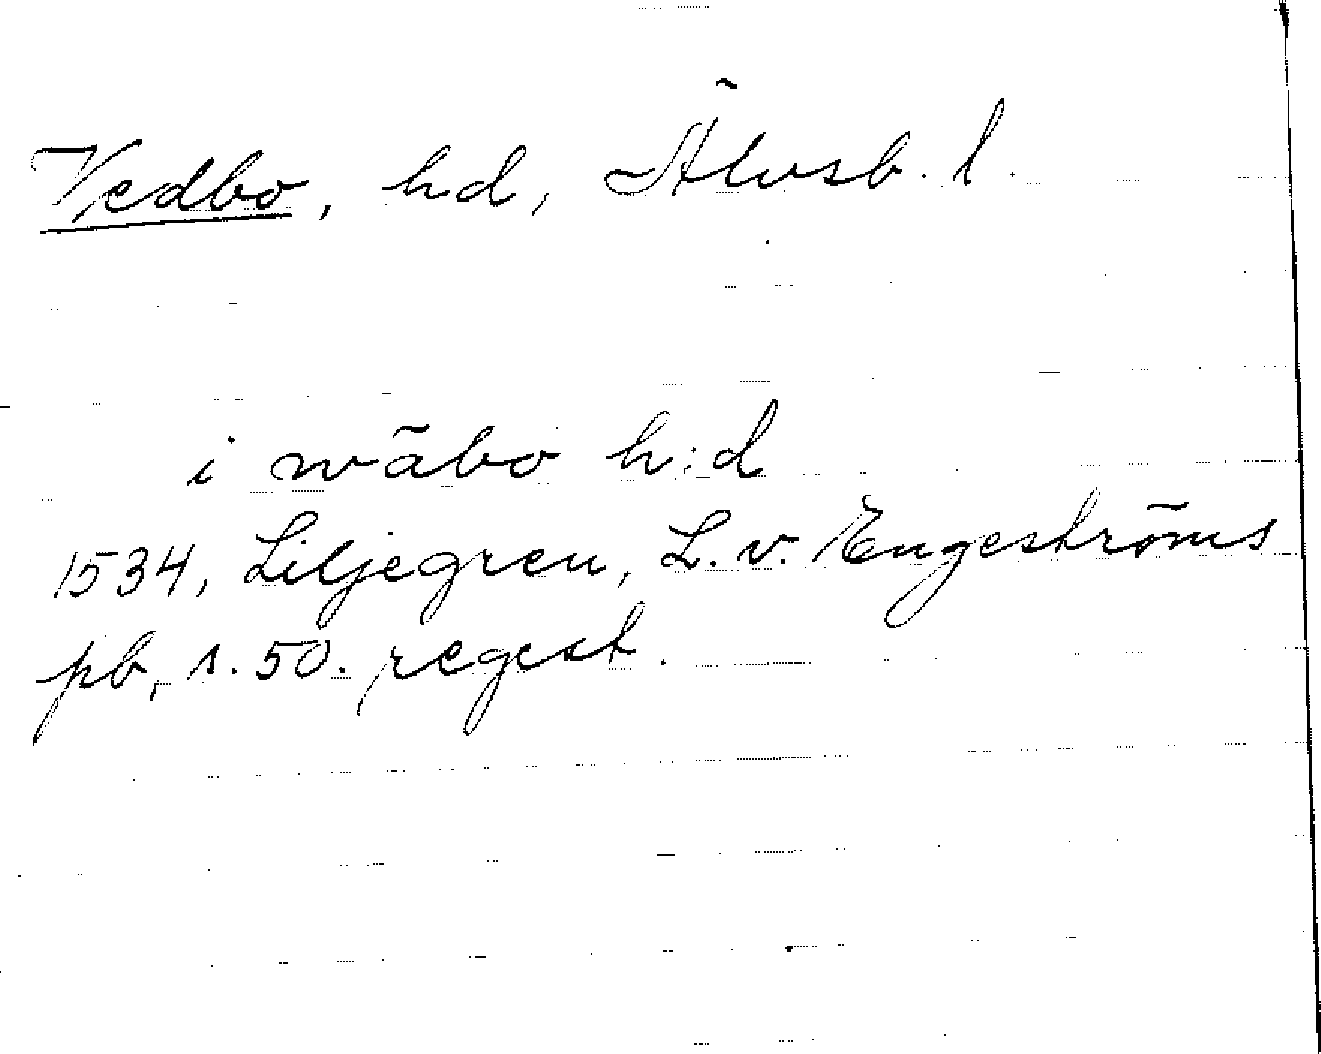 Vedbo, hd, Älvsb. l.
i wäbo h:d
1534, Liljegren, L. v. Engeströms
pb, s. 50. regest.